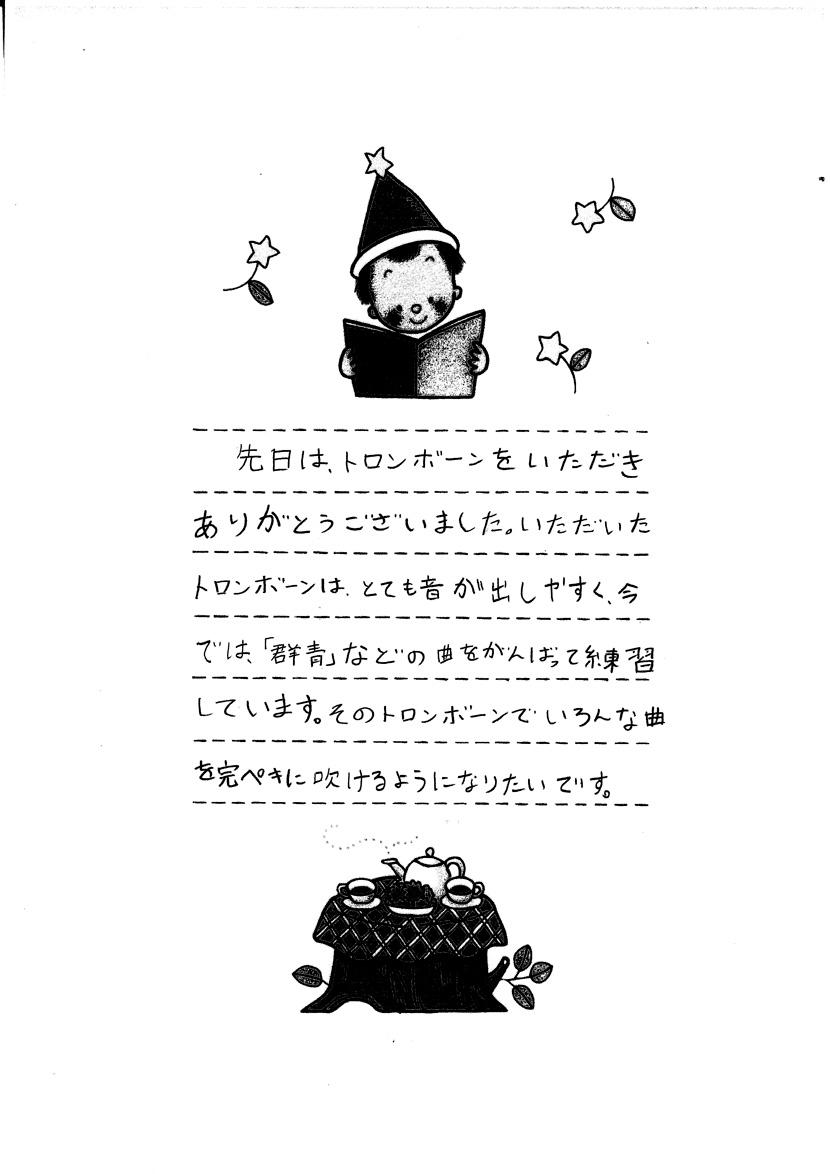 先日は、トロンボーンをいただき
ありがとうございました。いただいた
トロンボーンは、とても音が出しやすく、今
では、「群青」などの曲をがんばって練習
しています。そのトロンボーンでいろんな曲
を完ぺきに吹けるようになりたいです。